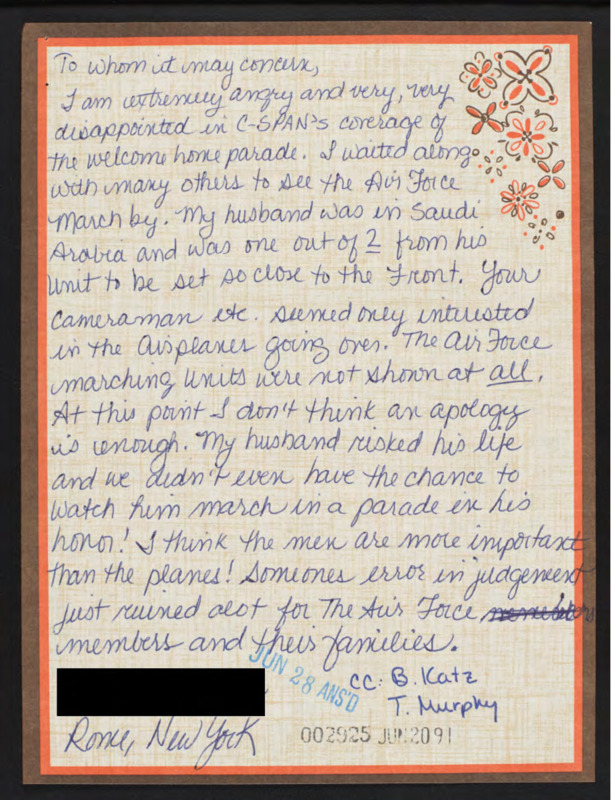 To whom it may concern,
I am extremely angry and very, very
disappointed in C-SPAN's coverage of
the welcome home parade. I waited along
with many others to see the Air Force
March by. My husband was in Saudi
Arabia and was one out of 2 from his
Unit to be set so close to the Front. Your
cameraman etc. seemed only interested
in the Airplanes going over. The Air Force
marching Units were not shown at all.
At this point I don't think an apology
is enough. My husband risked his life
and we didn't even have the chance to
watch him march in a parade in his
honor! I think the men are more important
than the planes! Someones error in judgement
just ruined alot for The Air Force
members and their families.
JUN 28 ANS'D
cc: B. Katz
T. Murphy
Rome, New York
002925 JUN 20 91